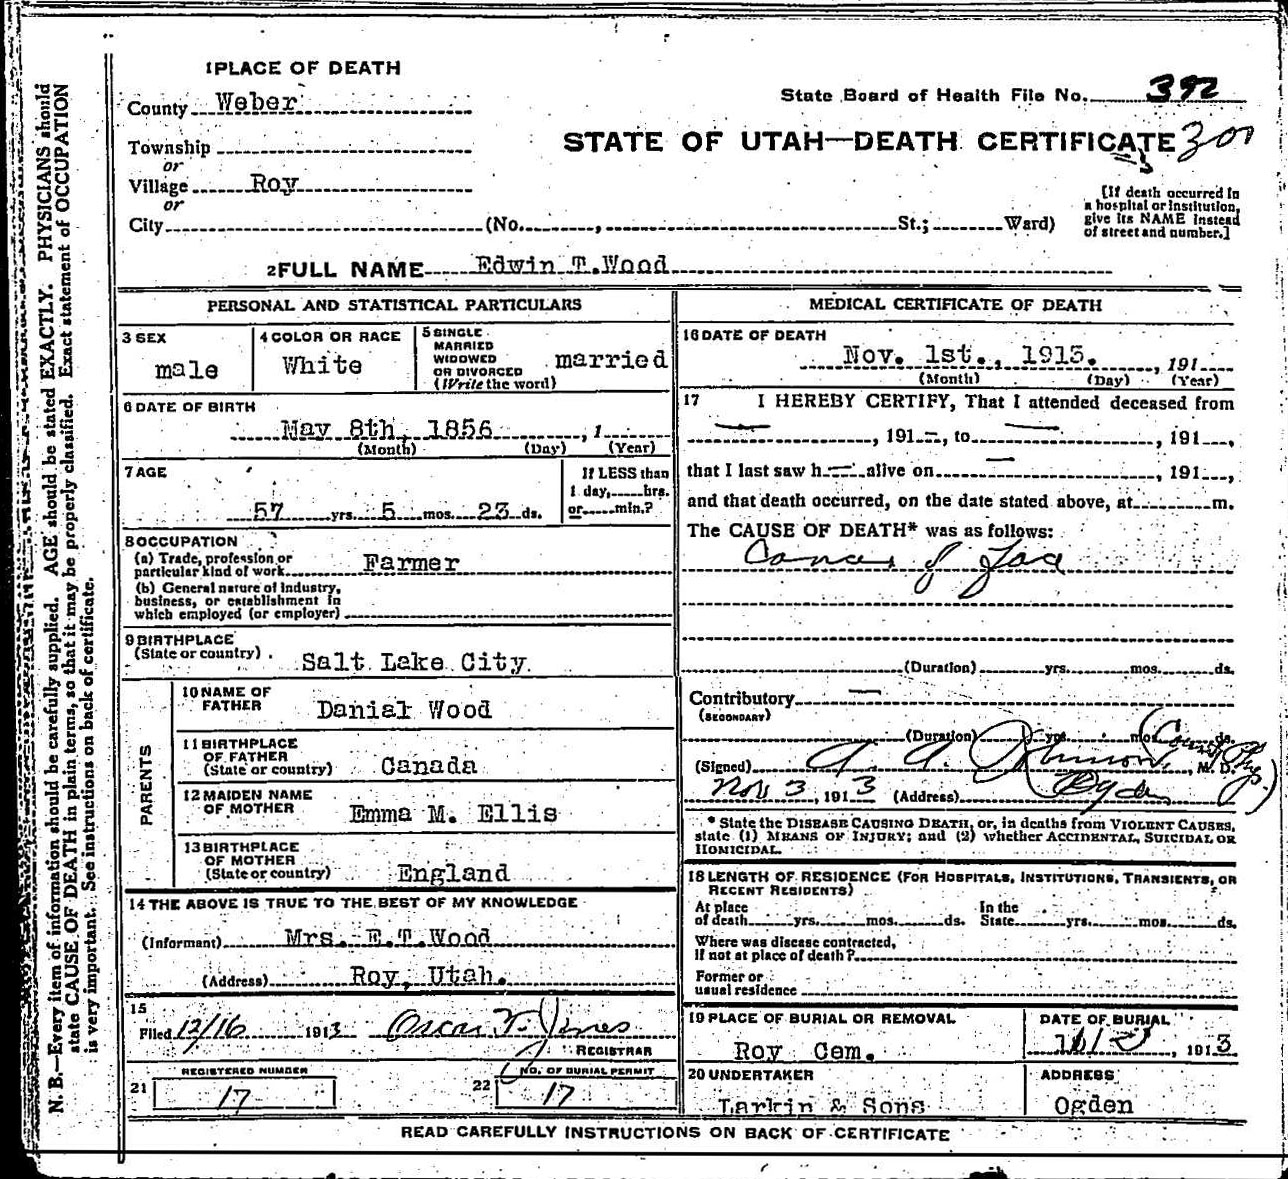 1 PLACE OF DEATH
County Weber
Township
or
Village Roy
or
City (No. , St.; Ward)
State Board of Health File No. 392
STATE OF UTAH—DEATH CERTIFICATE 300
[If death occurred in
a hospital or institution,
give its NAME instead
of street and number.]
2 FULL NAME Edwin T. Wood
PERSONAL AND STATISTICAL PARTICULARS
3 SEX
male
4 COLOR OR RACE
White
5 SINGLE
MARRIED
WIDOWED
OR DIVORCED
(Write the word)
married
6 DATE OF BIRTH
May 8th, 1856 , 1
(Month) (Day) (Year)
7 AGE
57 yrs. 5 mos. 23 ds.
If LESS than
1 day, hrs.
or min.?
8 OCCUPATION
(a) Trade, profession or
particular kind of work Farmer
(b) General nature of industry,
business, or establishment in
which employed (or employer)
9 BIRTHPLACE
(State or country)
Salt Lake City
PARENTS
10 NAME OF
FATHER
Danial Wood
11 BIRTHPLACE
OF FATHER
(State or country) Canada
12 MAIDEN NAME
OF MOTHER
Emma M. Ellis
13 BIRTHPLACE
OF MOTHER
(State or country) England
14 THE ABOVE IS TRUE TO THE BEST OF MY KNOWLEDGE
(Informant) Mrs. E.T.Wood
(Address) Roy, Utah.
15
Filed 12/16 1913 Oscar Jones
REGISTRAR
REGISTERED NUMBER
21 17
NO. OF BURIAL PERMIT
22 17
MEDICAL CERTIFICATE OF DEATH
16 DATE OF DEATH
Nov. 1st., 1913. , 191
(Month) (Day) (Year)
17 I HEREBY CERTIFY, That I attended deceased from
— , 191—, to — , 191 ,
that I last saw h— alive on — , 191 ,
and that death occurred, on the date stated above, at m.
The CAUSE OF DEATH* was as follows:
Cancer of Face
(Duration) yrs. mos. ds.
Contributory —
(SECONDARY)
(Duration) yrs. mos. ds.
(Signed) A. A. Robinson, M. D. (County Phys.)
Nov 3, 1913 (Address) Ogden
* State the DISEASE CAUSING DEATH, or, in deaths from VIOLENT CAUSES,
state (1) MEANS OF INJURY; and (2) whether ACCIDENTAL, SUICIDAL OR
HOMICIDAL.
18 LENGTH OF RESIDENCE (FOR HOSPITALS, INSTITUTIONS, TRANSIENTS, OR
RECENT RESIDENTS)
At place In the
of death yrs. mos. ds. State yrs. mos. ds.
Where was disease contracted,
if not at place of death?
Former or
usual residence
19 PLACE OF BURIAL OR REMOVAL
Roy Cem.
DATE OF BURIAL
, 1913
20 UNDERTAKER
Larkin & Sons
ADDRESS
Ogden
READ CAREFULLY INSTRUCTIONS ON BACK OF CERTIFICATE
N. B.—Every item of information should be carefully supplied. AGE should be stated EXACTLY. PHYSICIANS should
state CAUSE OF DEATH in plain terms, so that it may be properly classified. Exact statement of OCCUPATION
is very important. See instructions on back of certificate.